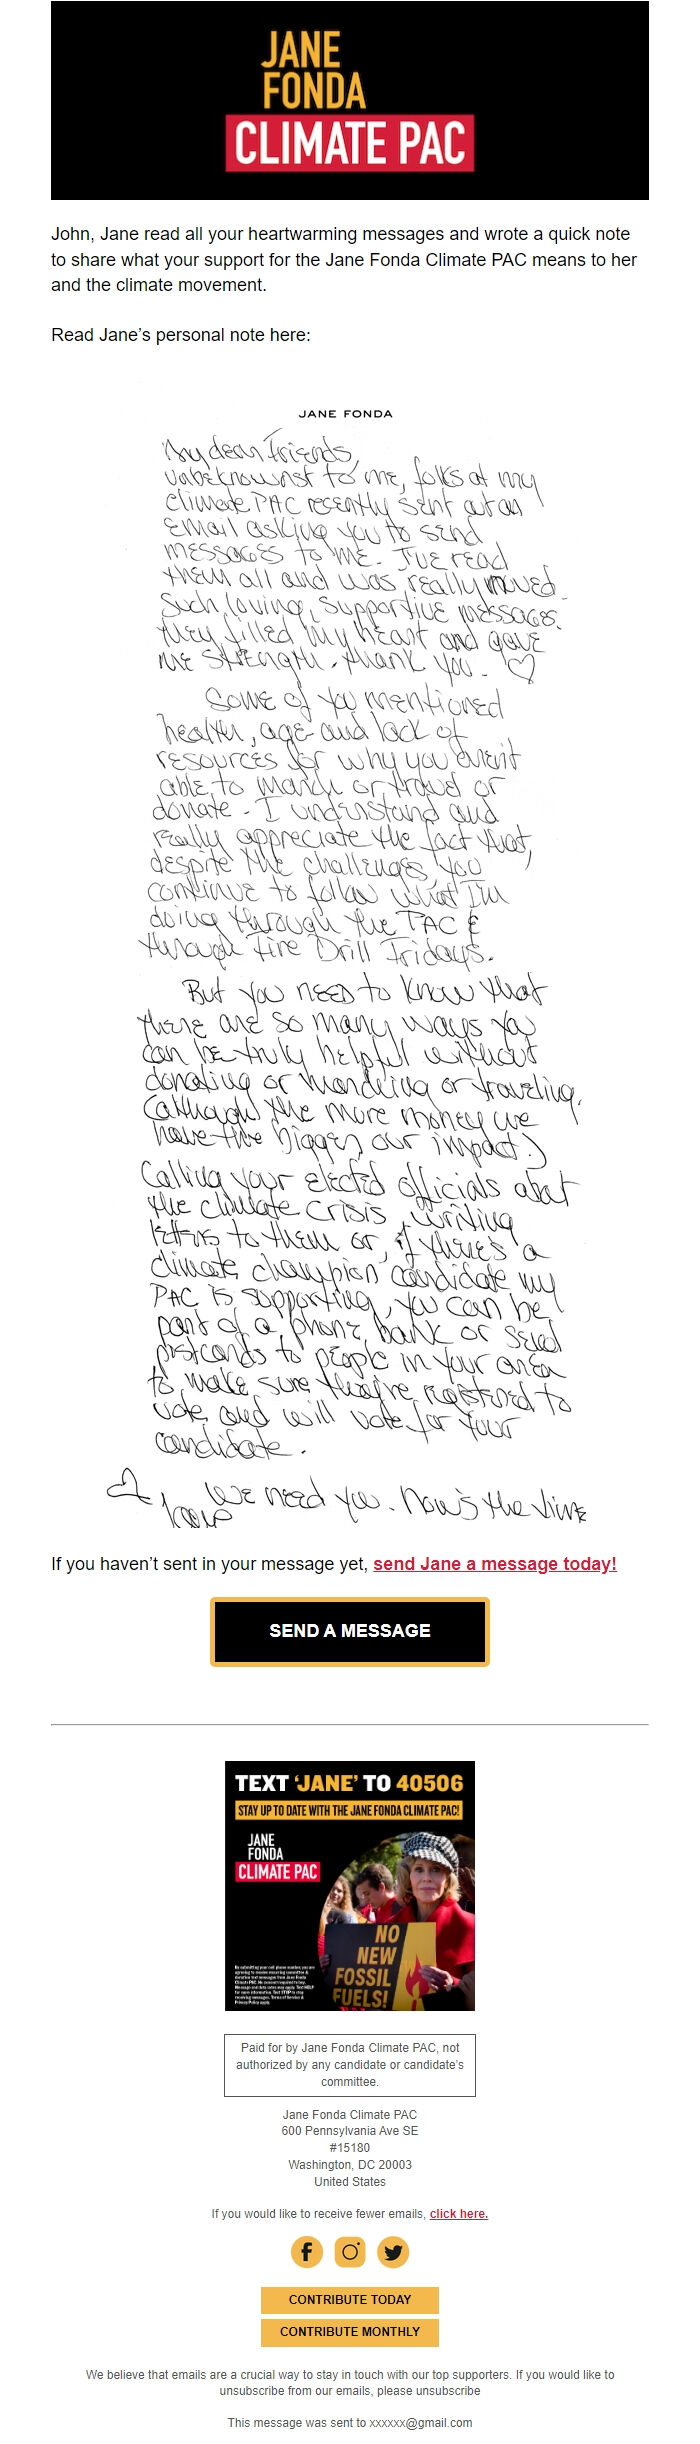 JANE
FONDA
CLIMATE PAC
John, Jane read all your heartwarming messages and wrote a quick note
to share what your support for the Jane Fonda Climate PAC means to her
and the climate movement.
Read Jane’s personal note here:
JANE FONDA
My dear Friends,
Unbeknownst to me, folks at my
climate PAC recently sent out an
email asking you to send
messages to me. I've read
them all and was really moved.
Such loving, supportive messages.
They filled my heart and gave
me strength. Thank you. ♡
Some of you mentioned
health, age and lack of
resources for why you aren't
able to march or travel or
donate - I understand and
really appreciate the fact that,
despite the challenges, you
continue to follow what I'm
doing through the PAC &
through Fire Drill Fridays.
But you need to know that
there are so many ways you
can be truly helpful without
donating or marching or traveling.
(although the more money we
have the bigger our impact.)
Calling your elected officials about
the climate crisis, writing
letters to them or, if there's a
climate champion candidate my
PAC is supporting, you can be
part of a phone bank or send
postcards to people in your area
to make sure they're registered to
vote and will vote for your
candidate.
We need you. Now's the time
♡ Jane
If you haven’t sent in your message yet, send Jane a message today!
SEND A MESSAGE
TEXT ‘JANE’ TO 40506
STAY UP TO DATE WITH THE JANE FONDA CLIMATE PAC!
JANE
FONDA
CLIMATE PAC
NO
NEW
FOSSIL
FUELS!
By submitting your cell phone number, you are
agreeing to receive recurring committee &
donation text messages from Jane Fonda
Climate PAC. No consent required to buy.
Message and data rates may apply. Text HELP
for more information. Text STOP to stop
receiving messages. Terms of Service &
Privacy Policy apply.
Paid for by Jane Fonda Climate PAC, not
authorized by any candidate or candidate’s
committee.
Jane Fonda Climate PAC
600 Pennsylvania Ave SE
#15180
Washington, DC 20003
United States
If you would like to receive fewer emails, click here.
CONTRIBUTE TODAY
CONTRIBUTE MONTHLY
We believe that emails are a crucial way to stay in touch with our top supporters. If you would like to
unsubscribe from our emails, please unsubscribe
This message was sent to xxxxxx@gmail.com